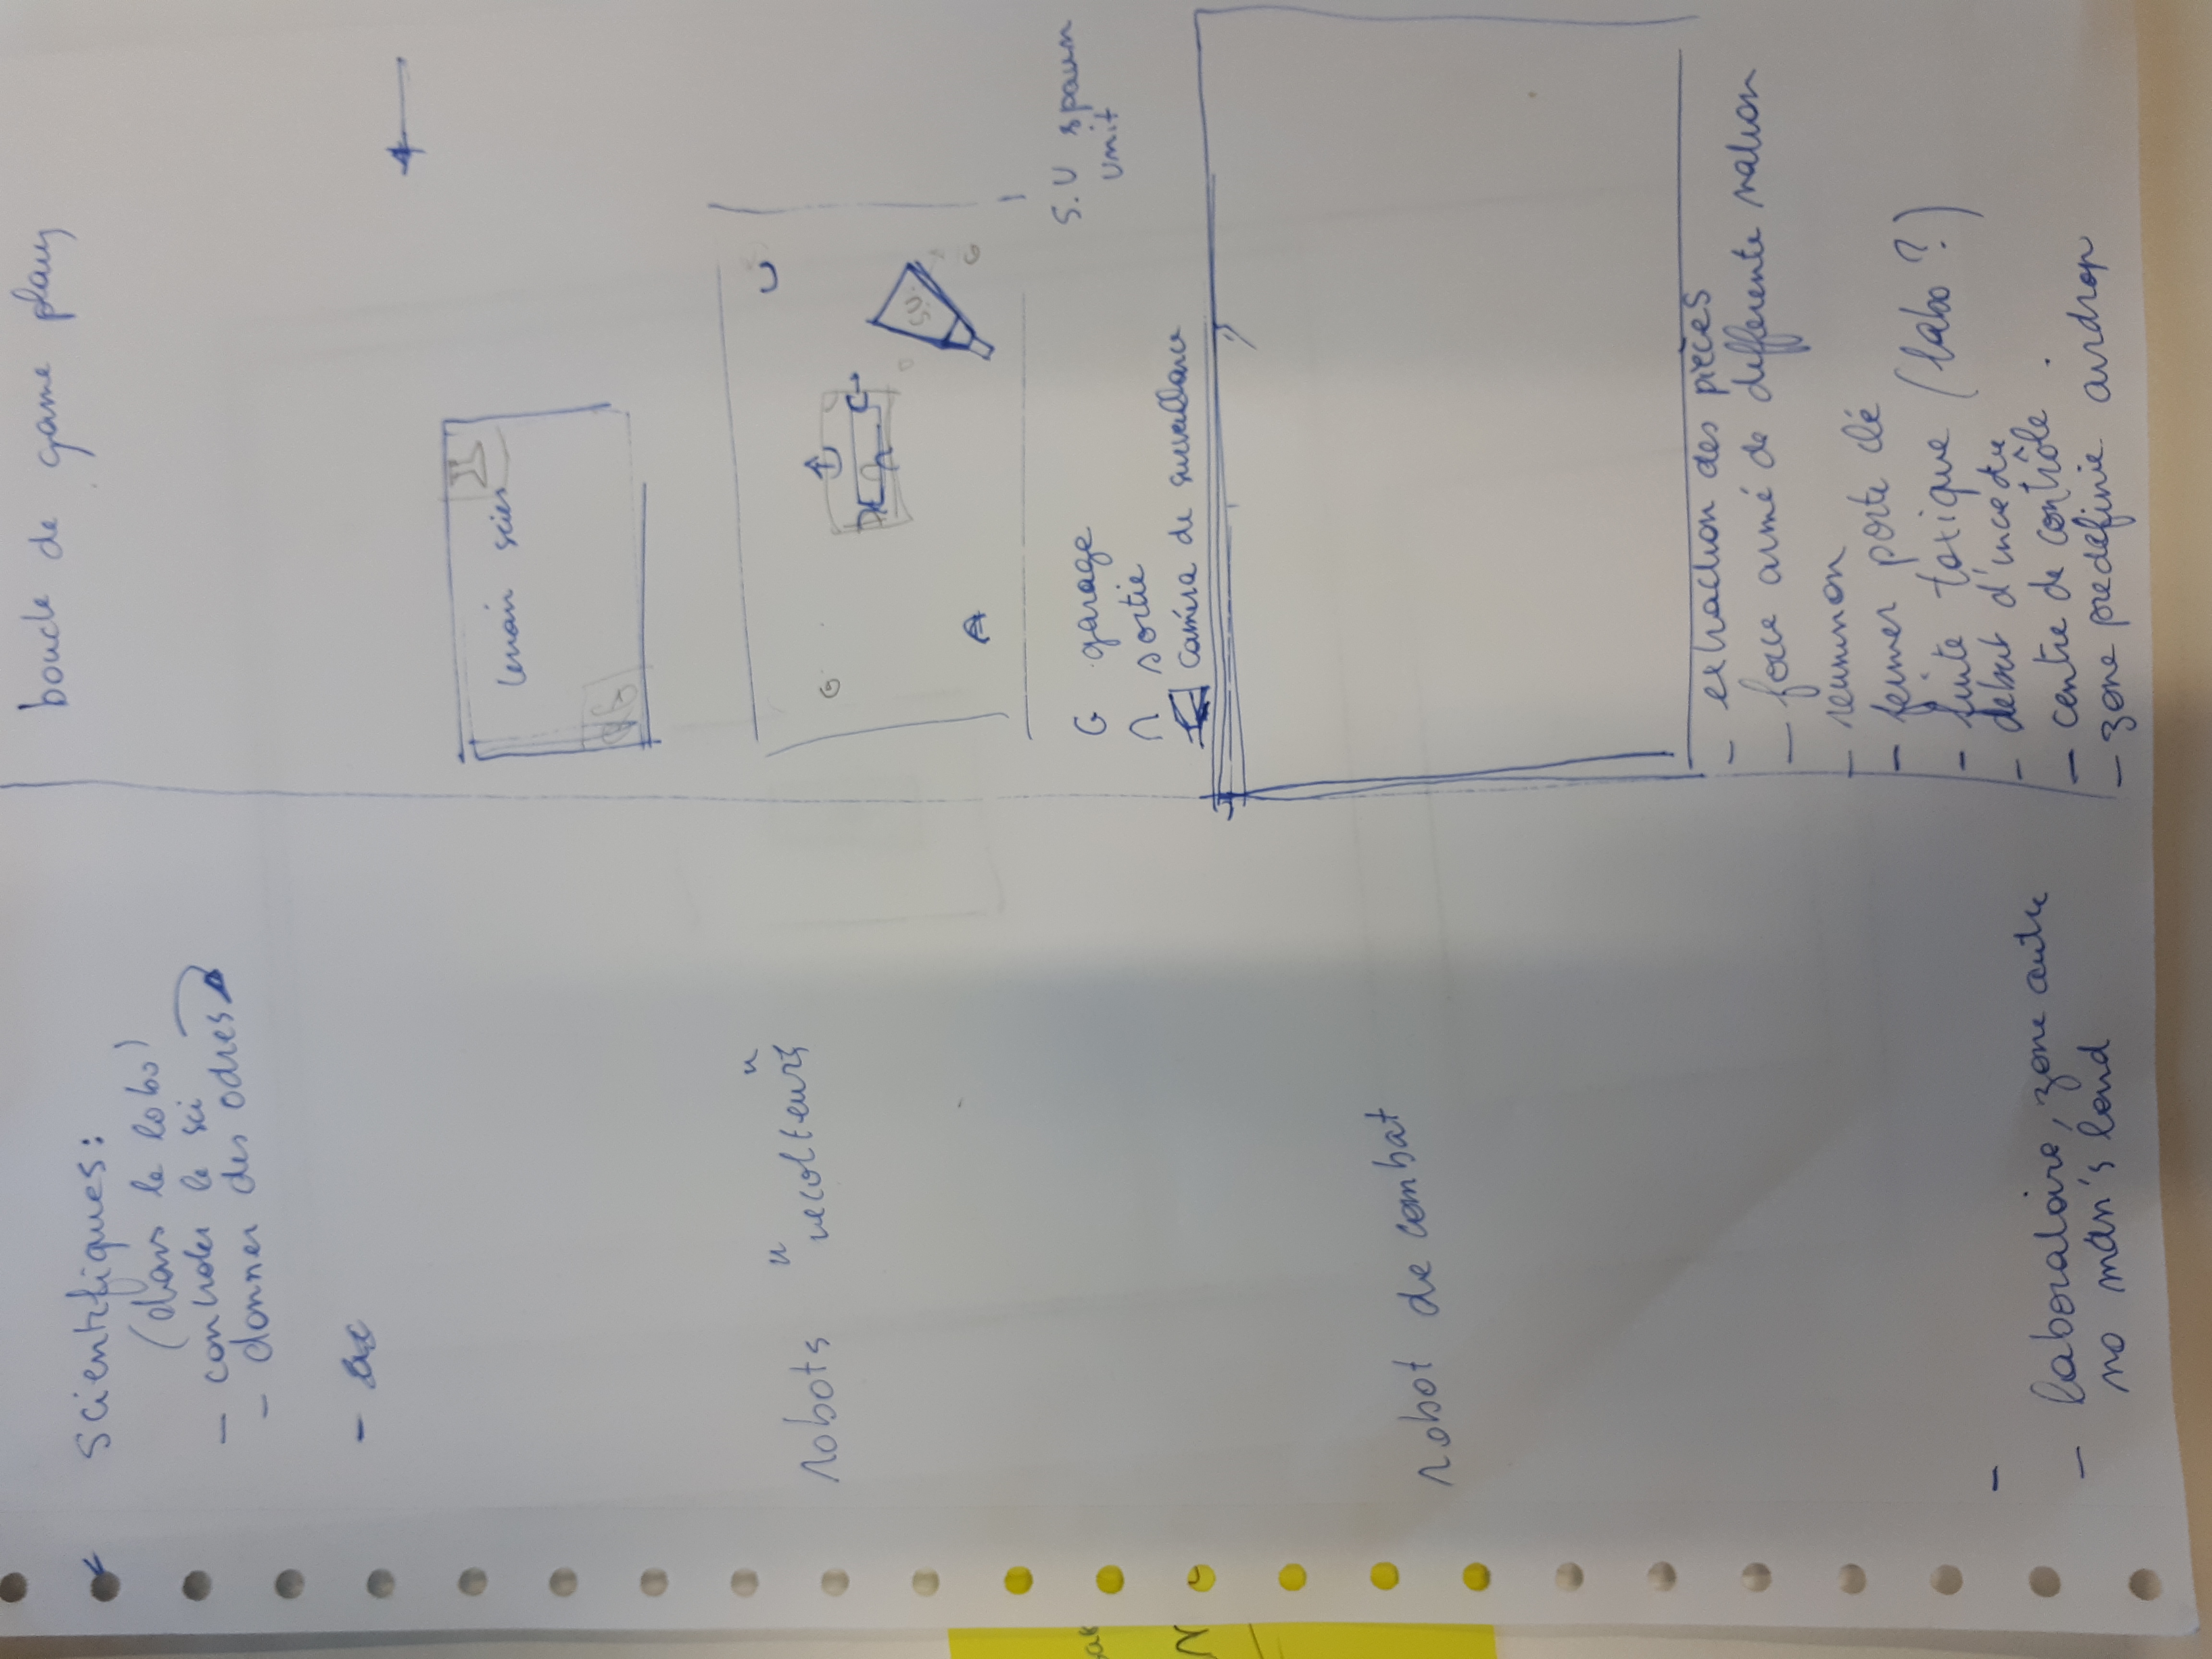 scientifiques:
(dans le labo)
- controler le sci
- donner des odres
-
robots "recolteurs"
robot de combat
-
- laboratoire, zone centre
no man's land
boucle de game play
terrain scien
G
S.U.
G
A
G garage
∩ sortie
caméra de surveillance
S.U spawn
unit
- extraction des pièces
- force armé de differente nation
- reunion
- fermer porte clé
- fuite toxique (labo?)
- debut d'incedie
- centre de contrôle
- zone predefinie airdrop